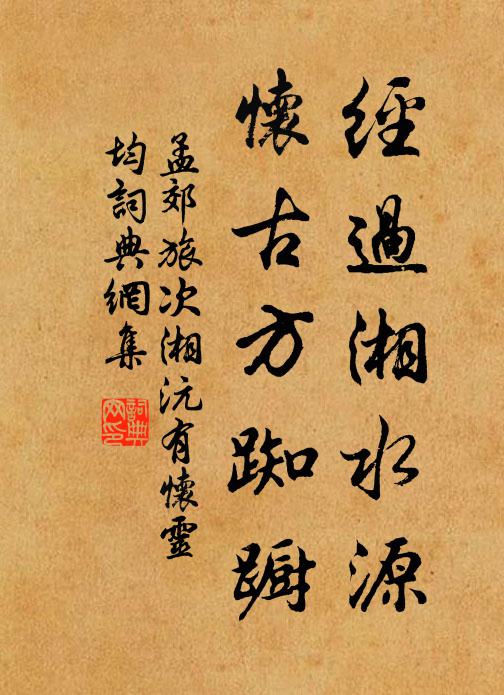 經過湘水源
懷古方踟躕
孟郊旅次湘沅有懷靈
均詞典網集
詞典
网印